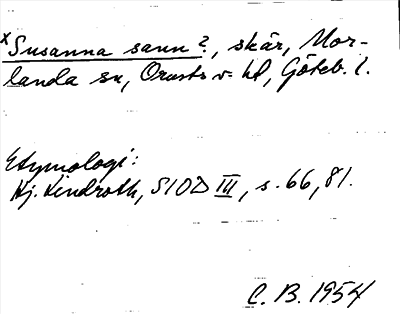 x Susanna sann?, skär, Mor-
landa sn, Orusts v. hd, Göteb. l.
Etymologi:
Hj. Lindroth, SIOD III, s. 66, 81.
C. B. 1954